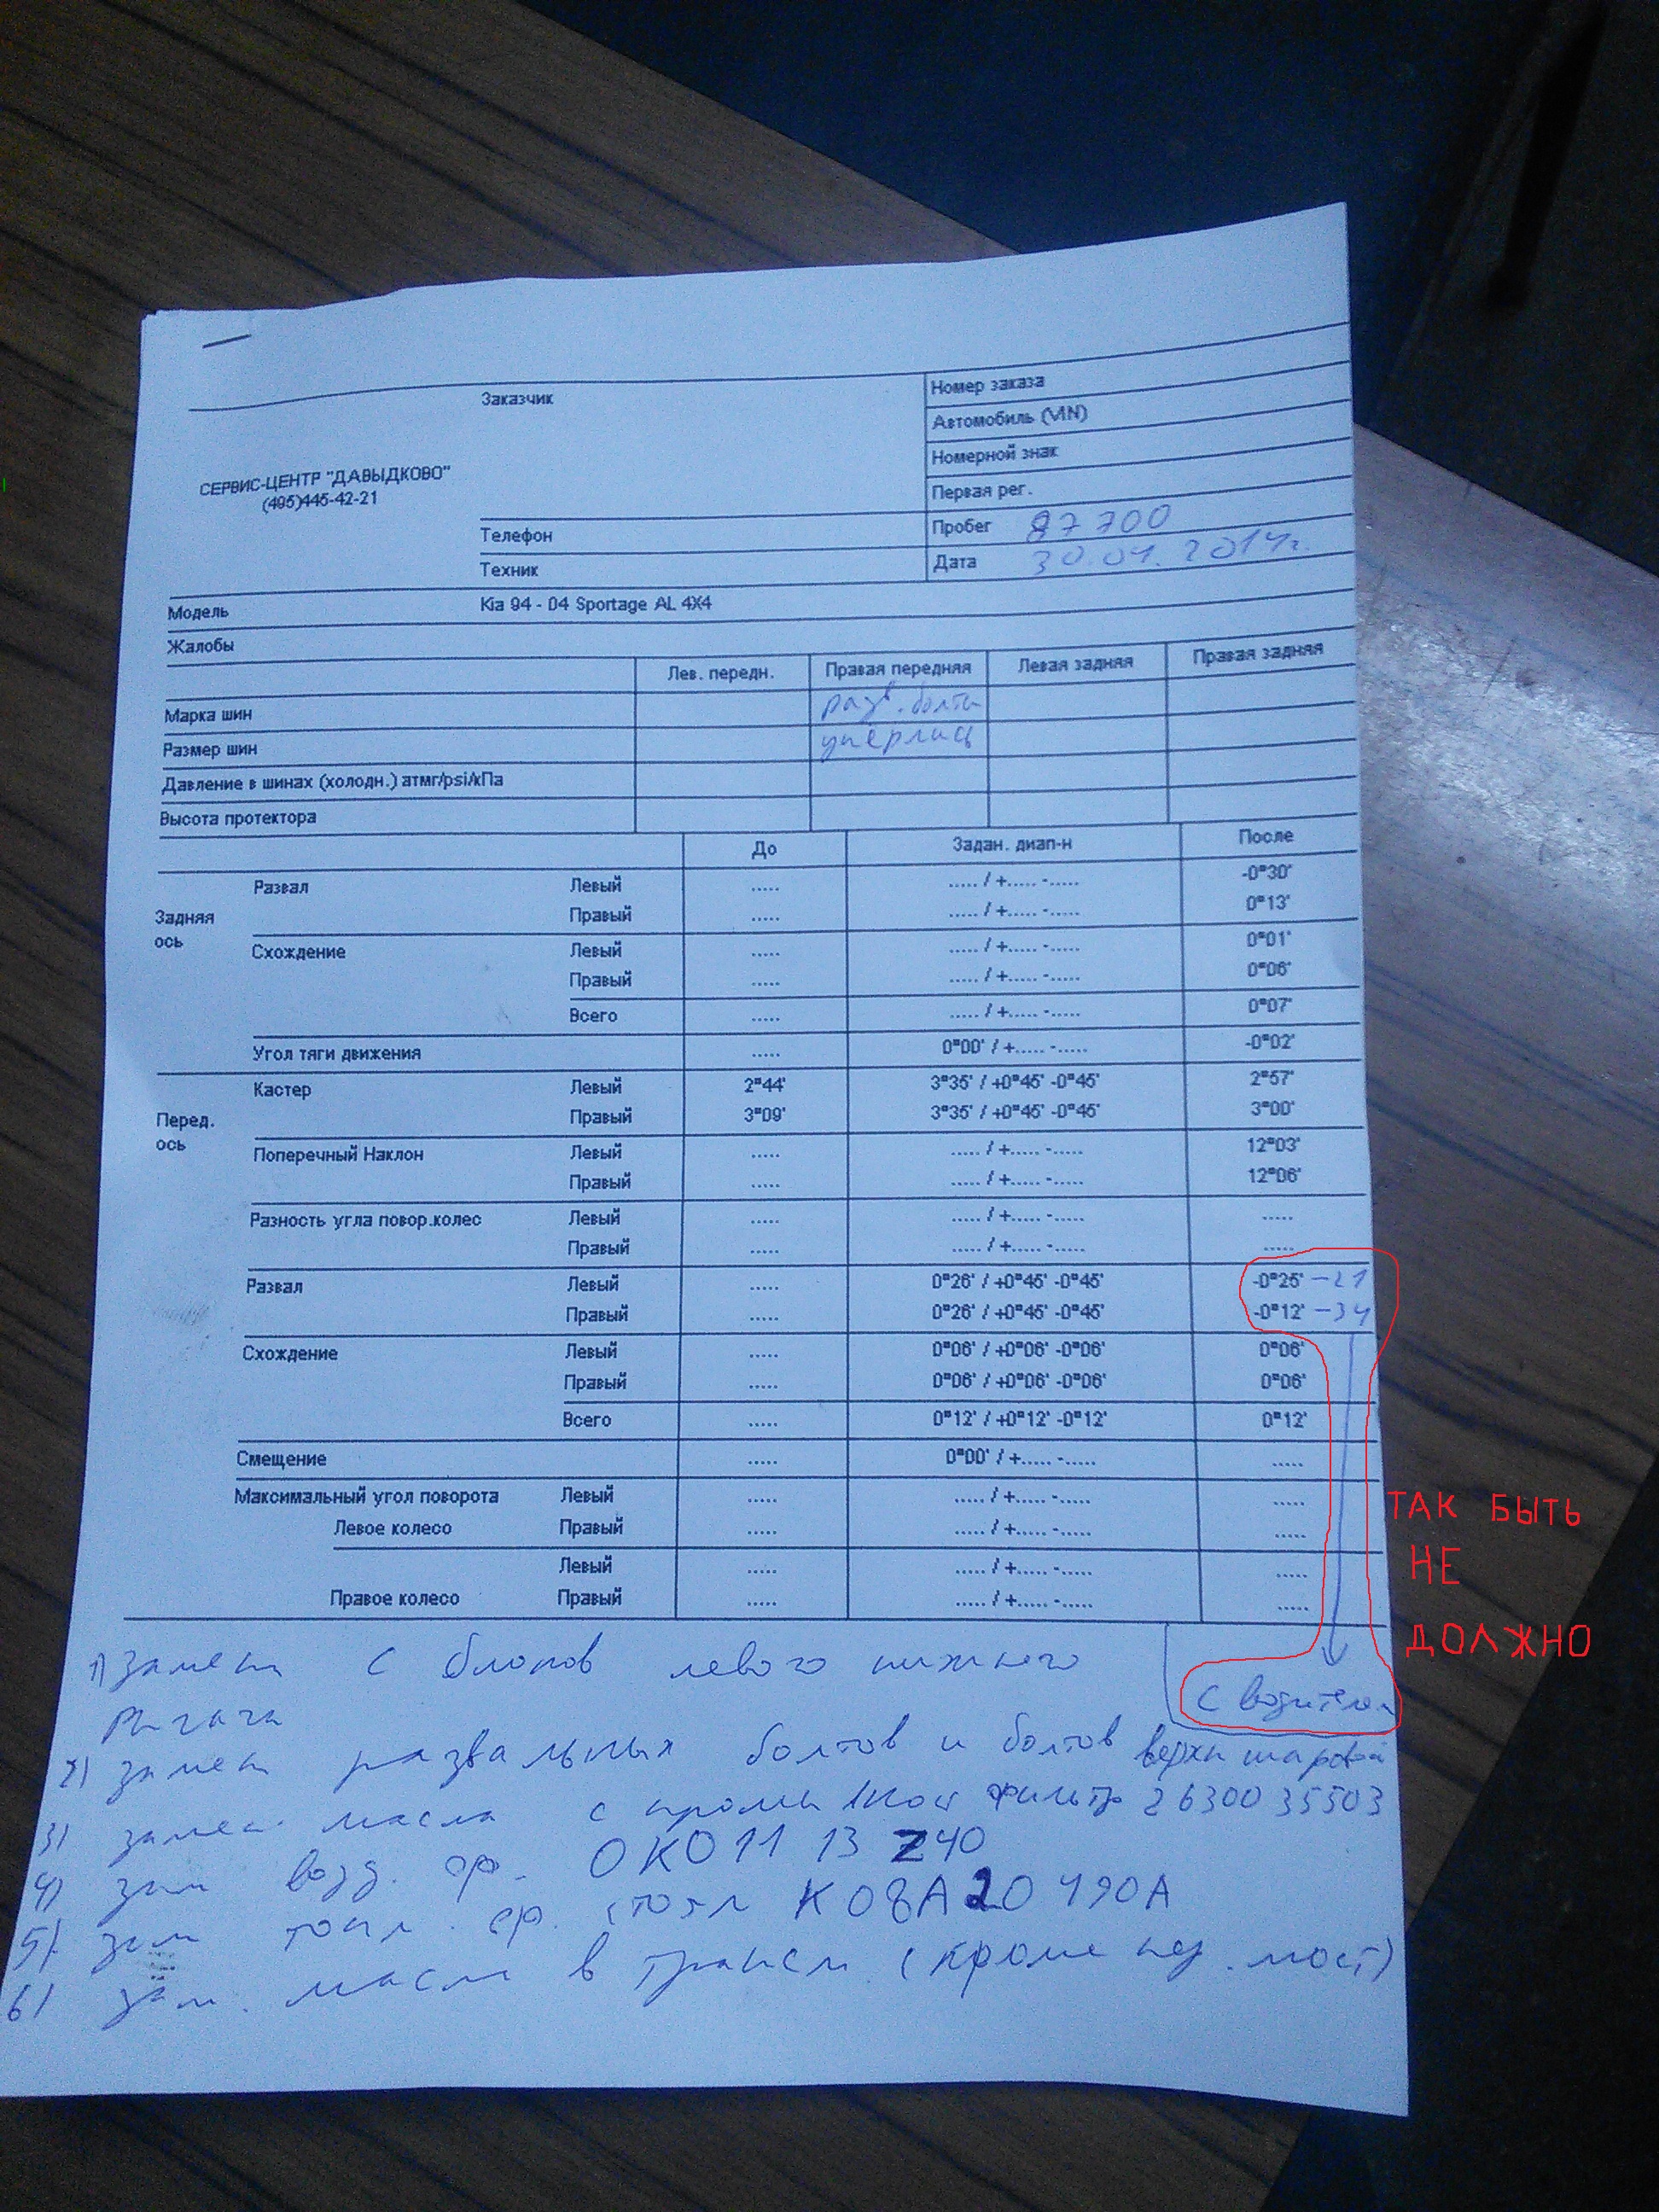 Заказчик
Номер заказа
Автомобиль (VIN)
Номерной знак
Первая рег.
СЕРВИС-ЦЕНТР "ДАВЫДКОВО"
(495)445-42-21
Телефон
Пробег 87700
Техник
Дата 30.04.2014г.
Модель Kia 94 - 04 Sportage AL 4X4
Жалобы
Лев. передн. Правая передняя Левая задняя Правая задняя
Марка шин разв. болты
Размер шин упёрлись
Давление в шинах (холодн.) атмг/psi/кПа
Высота протектора
До Задан. диап-н После
Задняя ось
Развал Левый ..... ..... / +..... -..... -0°30'
Правый ..... ..... / +..... -..... 0°13'
Схождение Левый ..... ..... / +..... -..... 0°01'
Правый ..... ..... / +..... -..... 0°06'
Всего ..... ..... / +..... -..... 0°07'
Угол тяги движения ..... 0°00' / +..... -..... -0°02'
Перед. ось
Кастер Левый 2°44' 3°35' / +0°45' -0°45' 2°57'
Правый 3°09' 3°35' / +0°45' -0°45' 3°00'
Поперечный Наклон Левый ..... ..... / +..... -..... 12°03'
Правый ..... ..... / +..... -..... 12°06'
Разность угла повор.колес Левый ..... ..... / +..... -..... .....
Правый ..... ..... / +..... -..... .....
Развал Левый ..... 0°26' / +0°45' -0°45' -0°25' -21
Правый ..... 0°26' / +0°45' -0°45' -0°12' -34
Схождение Левый ..... 0°06' / +0°06' -0°06' 0°06'
Правый ..... 0°06' / +0°06' -0°06' 0°06'
Всего ..... 0°12' / +0°12' -0°12' 0°12'
Смещение ..... 0°00' / +..... -..... .....
Максимальный угол поворота Левый ..... ..... / +..... -..... .....
Левое колесо Правый ..... ..... / +..... -..... .....
Левый ..... ..... / +..... -..... .....
Правое колесо Правый ..... ..... / +..... -..... .....
ТАК БЫТЬ
НЕ
ДОЛЖНО
с водителем
1) замена С блоков левого нижнего
рычага
2) замен развальных болтов и болтов верхн шаровой
3) замен. масла с фильтр 26300 35503
4) зам возд. ф. OKO11 13 Z40
5) зам топл. ф. стоял K08A20490A
6) зам. масла в трансм. (кроме пер. мост)